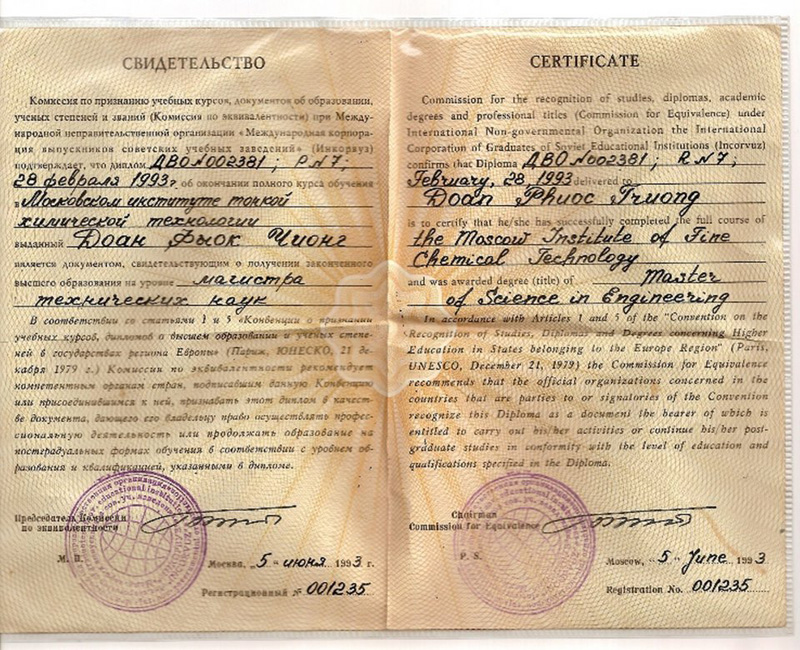 СВИДЕТЕЛЬСТВО
Комиссия по признанию учебных курсов, документов об образовании,
ученых степеней и званий (Комиссия по эквивалентности) при Между-
народной неправительственной организации «Международная корпора-
ция выпускников советских учебных заведений» (Инкорвуз)
подтверждает, что диплом ДВО №002381; Р.N7;
28 февраля 1993г. об окончании полного курса обучения
в Московском институте тонкой
химической технологии
выданный Доан Фыок Чионг
является документом, свидетельствующим о получении законченного
высшего образования на уровне магистра
технических наук
В соответствии со статьями 1 и 5 «Конвенции о признании
учебных курсов, дипломов о высшем образовании и ученых степе-
ней в государствах региона Европы» (Париж, ЮНЕСКО, 21 де-
кабря 1979 г.) Комиссия по эквивалентности рекомендует
компетентным органам стран, подписавшим данную Конвенцию
или присоединившимся к ней, признавать этот диплом в качест-
ве документа, дающего его владельцу право осуществлять профес-
сиональную деятельность или продолжать образование на
постградуальных формах обучения в соответствии с уровнем об-
разования и квалификацией, указанными в дипломе.
Председатель Комиссии
по эквивалентности
М. П.
Москва, „5“ июня 1993 г.
Регистрационный № 001235
CERTIFICATE
Commission for the recognition of studies, diplomas, academic
degrees and professional titles (Commission for Equivalence) under
International Non-governmental Organization the International
Corporation of Graduates of Soviet Educational Institutions (Incorvuz)
confirms that Diploma ДВО №002381; P.N7;
February, 28, 1993 delivered to
Doan Phuoc Truong
is to certify that he/she has successfully completed the full course of
the Moscow Institute of Fine
Chemical Technology
and was awarded degree (title) of Master
of Science in Engineering
In accordance with Articles 1 and 5 of the "Convention on the
Recognition of Studies, Diplomas and Degrees concerning Higher
Education in States belonging to the Europe Region" (Paris,
UNESCO, December 21, 1979) the Commission for Equivalence
recommends that the official organizations concerned in the
countries that are parties to or signatories of the Convention
recognize this Diploma as a document the bearer of which is
entitled to carry out his/her activities or continue his/her post-
graduate studies in conformity with the level of education and
qualifications specified in the Diploma.
Chairman
Commission for Equivalence
P. S.
Moscow, „5“ June 1993
Registration No. 001235